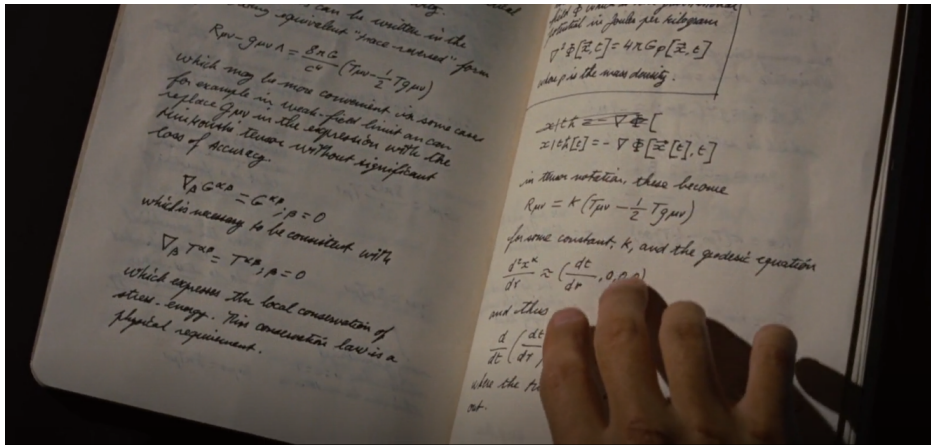 can be written in the
equivalent "trace-reversed" form
Rμν - gμν Λ = 8πG/c⁴ (Tμν - 1/2 T gμν)
which may be more convenient in some cases
for example in weak-field limit an can
replace gμν in the expression with the
Minkowski tensor without significant
loss of accuracy.
∇β G^αβ = G^αβ;β = 0
which is necessary to be consistent with
∇β T^αβ = T^αβ;β = 0
which expresses the local conservation of
stress-energy. This conservation law is a
physical requirement.
potential in joules per kilogram
∇²Φ[x⃗,t] = 4πGρ[x⃗,t]
where ρ is the mass density.
[t] = -∇Φ[x⃗[t],t]
in tensor notation, these become
Rμν = K (Tμν - 1/2 T gμν)
for some constant, K, and the geodesic equation
d²x^α/dτ ≈ (dt/dτ, 0,0,0)
and thus
d/dt (dt/dτ
where the
out.